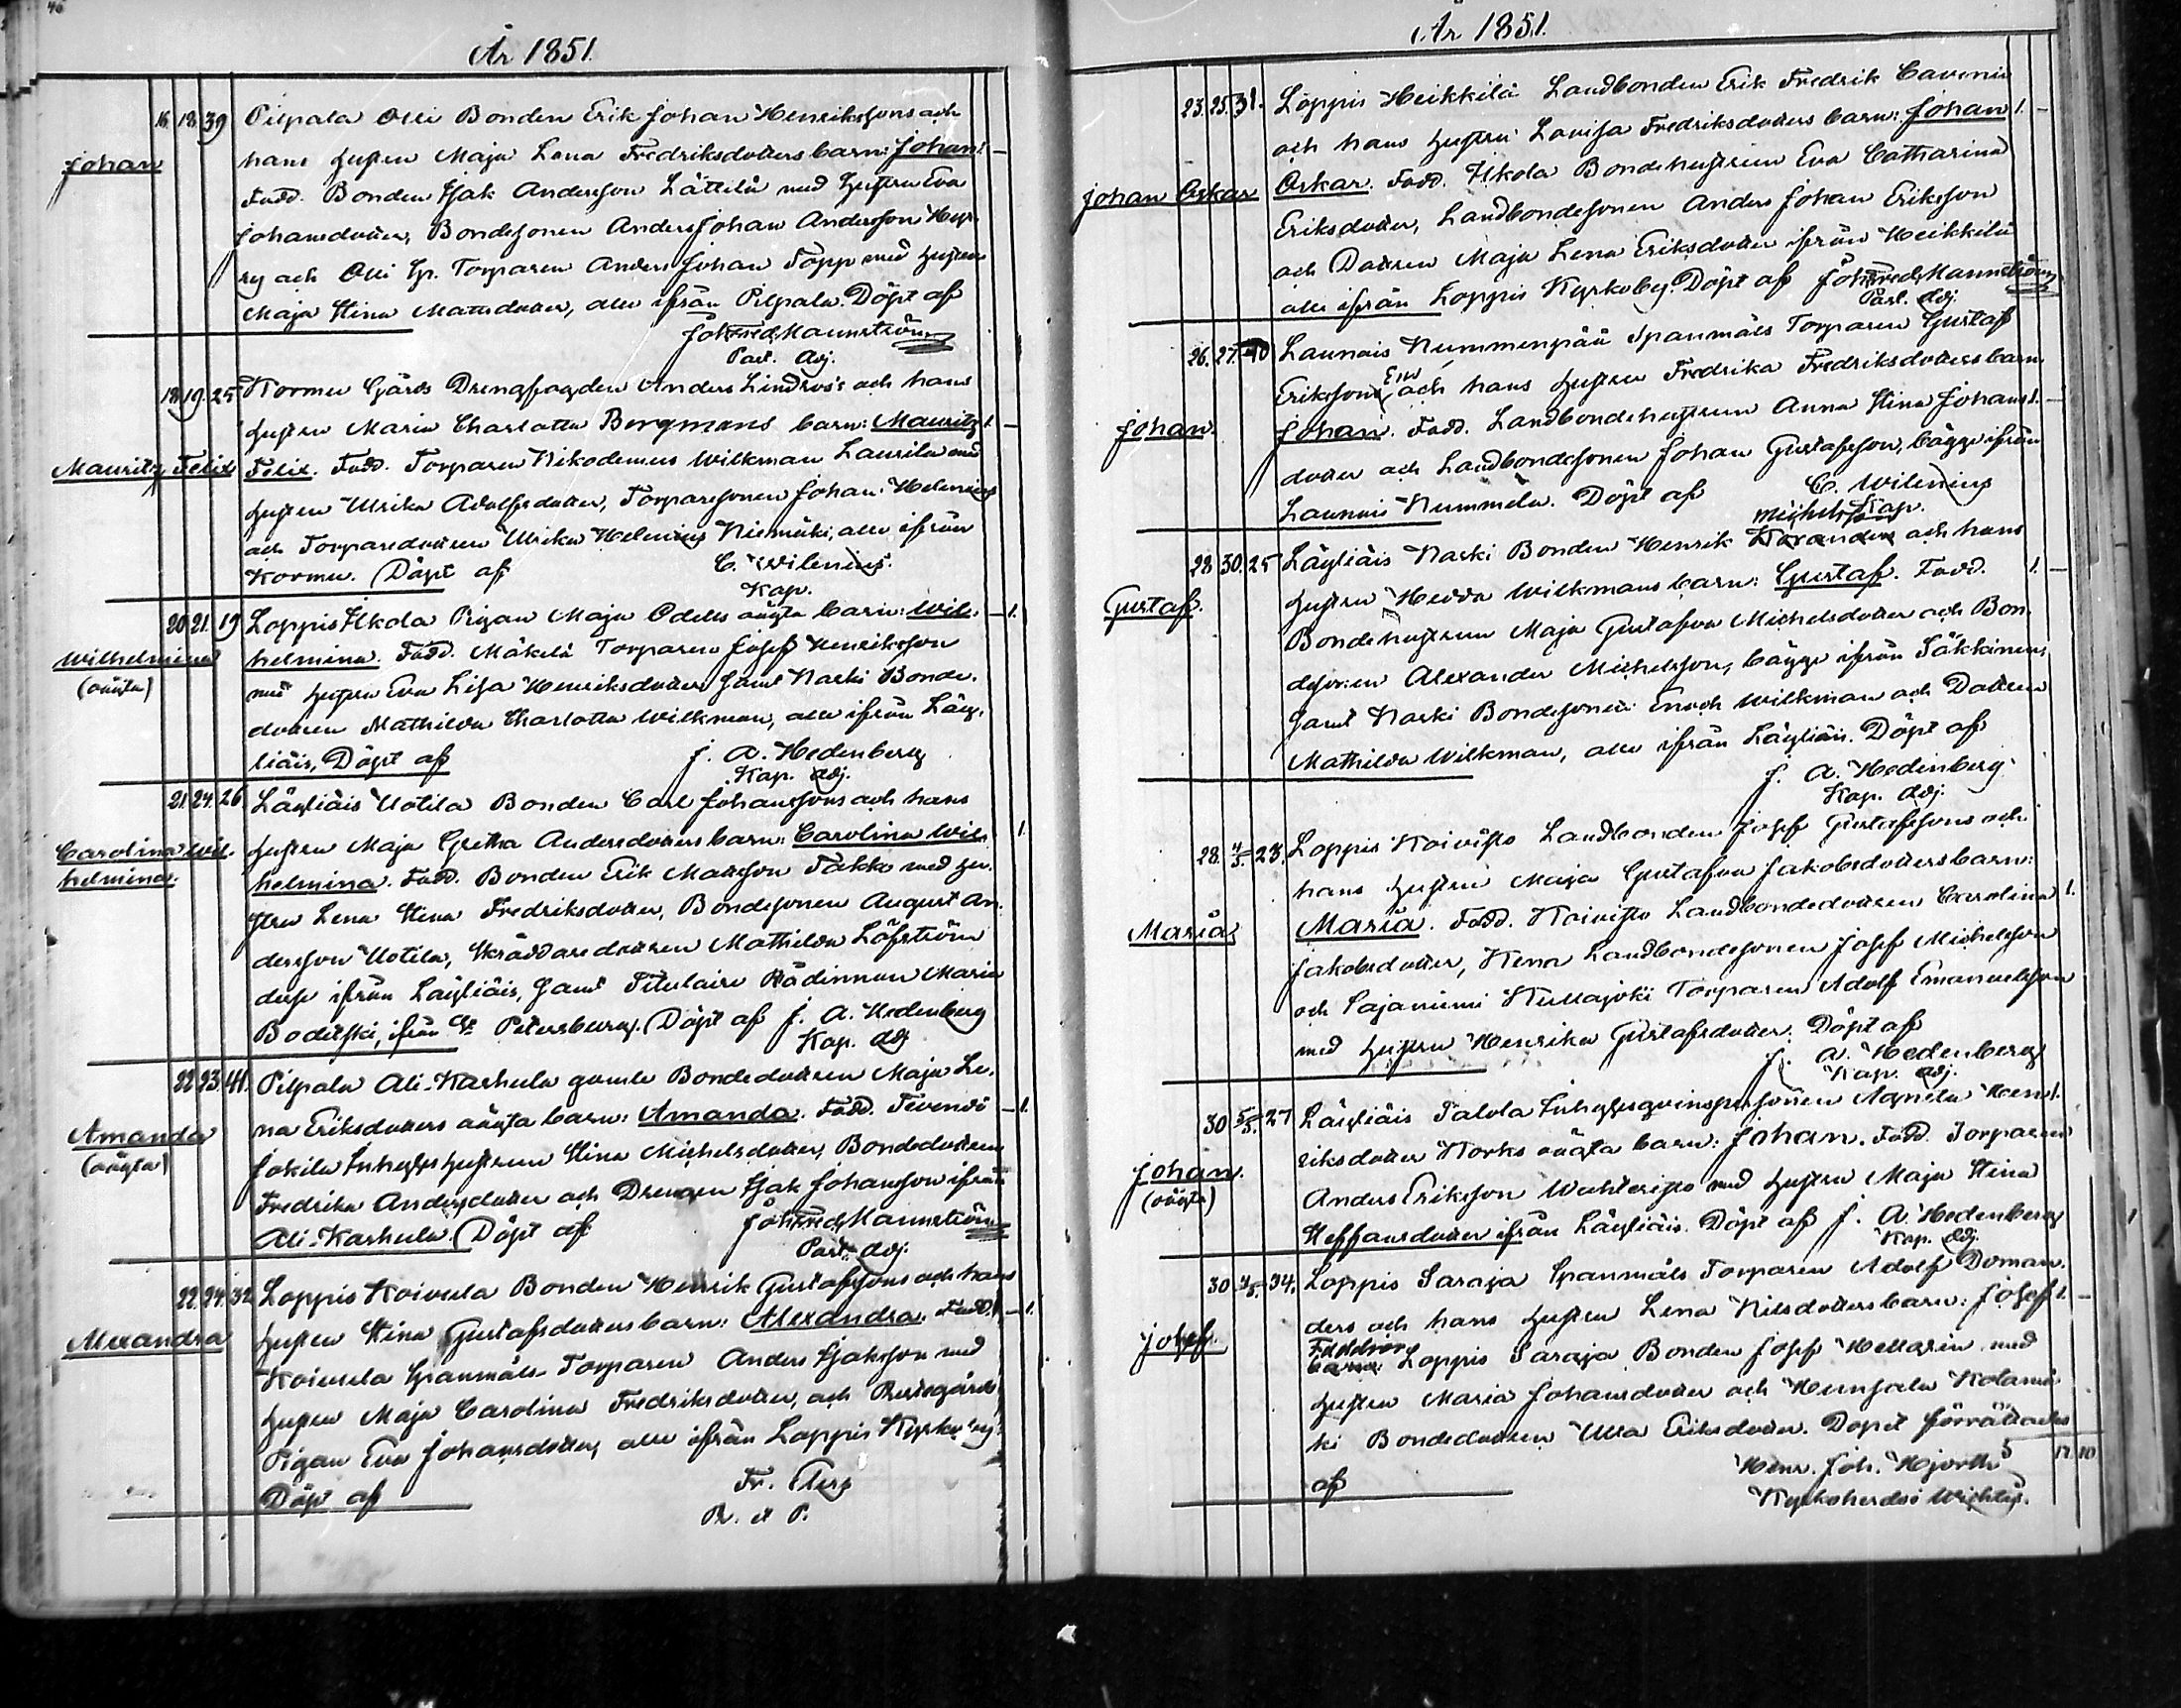 46
År 1851.
Johan
16. 18. 39 Pilpala Olli Bonden Erik Johan Henrikssons och
hans hustru Maja Lena Fredriksdotters barn: Johan. 1. —
Fadd. Bonden Isak Andersson Lättilä med hustru Eva
Johansdotter, Bondesonen Anders Johan Andersson
och Olli Sp. Torparen Anders Johan Topp med hustru
Maja Stina Mattsdotter, alla ifrån Pilpala. Döpt af
Joh. Fred. Mannström
Past. Adj.
18. 19. 25 Kormu Gårds Drengfogden Anders Lindroos's och hans
hustru Maria Charlotta Bergmans barn: Mauritz 1. —
Mauritz Felix
Felix. Fadd. Torparen Nikodemus Wilkman Laurila med
hustru Ulrika Adolfsdotter, Torparesonen Johan Helenius
och Torparedottren Ulrika Helenius Niemäki, alla ifrån
Kormu. Döpt af C. Wilenius.
Kap.
20. 21. 19 Loppis Ilkola Pigan Maja Odells oägta barn: Wil- — 1.
Wilhelmina
(oägta)
helmina. Fadd. Mäkelä Torparen Josef Henriksson
med hustru Eva Lisa Henriksdotter samt Naski Bonde-
dottren Mathilda Charlotta Wilkman, alla ifrån Läy-
liäis, Döpt af J. A. Hedenberg
Kap. Adj.
21. 24. 26. Läyliäis Uotila Bonden Carl Johanssons och hans
Carolina Wil-
helmina.
hustru Maja Gretha Andersdotters barn: Carolina Wil- 1.
helmina. Fadd. Bonden Erik Mattsson Takko med hu-
stru Lena Stina Fredriksdotter, Bondesonen August An-
dersson Uotila, Skräddaredottren Mathilda Löfström
desse ifrån Läyliäis, samt Titulaire Rådinnan Maria
Boditski, ifrån St. Petersburg. Döpt af J. A. Hedenberg
Kap. Adj.
22. 23. 41. Pilpala Ali-Karhula gamle Bondedottren Maja Le-
na Eriksdotters oägta barn: Amanda. Fadd. Tevendö — 1.
Amanda
(oägta)
Jokila Inhyses hustrun Stina Michelsdotter, Bondedottren
Fredrika Andersdotter och Drengen Isak Johansson ifrån
Ali-Karhula. Döpt af Joh. Fred. Mannström
Past. Adj.
22. 24. 32. Loppis Koivula Bonden Henrik Gustafssons och hans
Alexandra
hustru Stina Gustafsdotters barn: Alexandra. Fadd. — 1.
Koivula Spanmåls-Torparen Anders Isaksson med
hustru Maja Carolina Fredriksdotter, och Prestegårds
Pigan Eva Johansdotter, alla ifrån Loppis Kyrkoby.
Döpt af Fr.
P. et P.
År 1851.
23. 25. 31. Loppis Heikkilä Landbonden Erik Fredrik Cavenii
och hans hustru Lovisa Fredriksdotters barn: Johan 1. —
Johan Oskar
Oskar. Fadd. Ilkola Bondehustrun Eva Catharina
Eriksdotter, Landbondesonen Anders Johan Eriksson
och Dottren Maja Lena Eriksdotter ifrån Heikkilä
alla ifrån Loppis Kyrkoby. Döpt af Joh. Fred. Mannström
Past. Adj.
26. 27. 40 Launois Nummenpää Spanmåls Torparen Gustaf
Erikssons och hans hustru Fredrika Fredriksdotters barn
Johan.
Johan. Fadd. Landbondehustrun Anna Stina Johans- 1. —
dotter och Landbondesonen Johan Gustafsson, bägge ifrån
Launois Nummela. Döpt af C. Wilenius
Kap.
Michelsson
28. 30. 25 Läyliäis Naski Bonden Henrik och hans
Gustaf.
hustru Hedda Wilkmans barn: Gustaf. Fadd. 1. —
Bondehustrun Maja Gustafva Michelsdotter och Bon-
desonen Alexander Michelsson, bägge ifrån Säkkinens
samt Naski Bondesonen Enoch Wilkman och Dottren
Mathilda Wilkman, alla ifrån Läyliäis. Döpt af
J. A. Hedenberg
Kap. Adj.
28. 4/5. 23. Loppis Koivisto Landbonden Josef Gustafssons och
hans hustru Maja Gustafva Jakobsdotters barn:
Maria
Maria. Fadd. Koivisto Landbondedottren Carolina 1.
Jakobsdotter, Kena Landbondesonen Josef Michelsson
och Sajaniemi Kullajoki Torparen Adolf Emanuelsson
med hustru Henrika Gustafsdotter. Döpt af
J. A. Hedenberg
Kap. Adj.
30 5/5. 27 Läyliäis Talola Inhysesqvinspersonen Agneta Hen- 1.
Johan.
(oägta)
riksdotter Korks oägta barn: Johan. Fadd. Torparen
Anders Eriksson Wahteristo med hustru Maja Stina
Steffansdotter ifrån Läyliäis. Döpt af J. A. Hedenberg
Kap. Adj.
30 4/5. 34. Loppis Saraja Spanmåls Torparen Adolf Doman-
ders och hans hustru Lena Nilsdotters barn: Josef 1. —
Josef.
Faddrar
Loppis Saraja Bonden Josef Hellsrin med
hustru Maria Johansdotter och Hunsala Kolamä-
ki Bondedottren Ulla Eriksdotter. Dopet förrättades
af Henr. Joh. Hjorth 5 17. 10
Kyrkoherde i Wichtis.